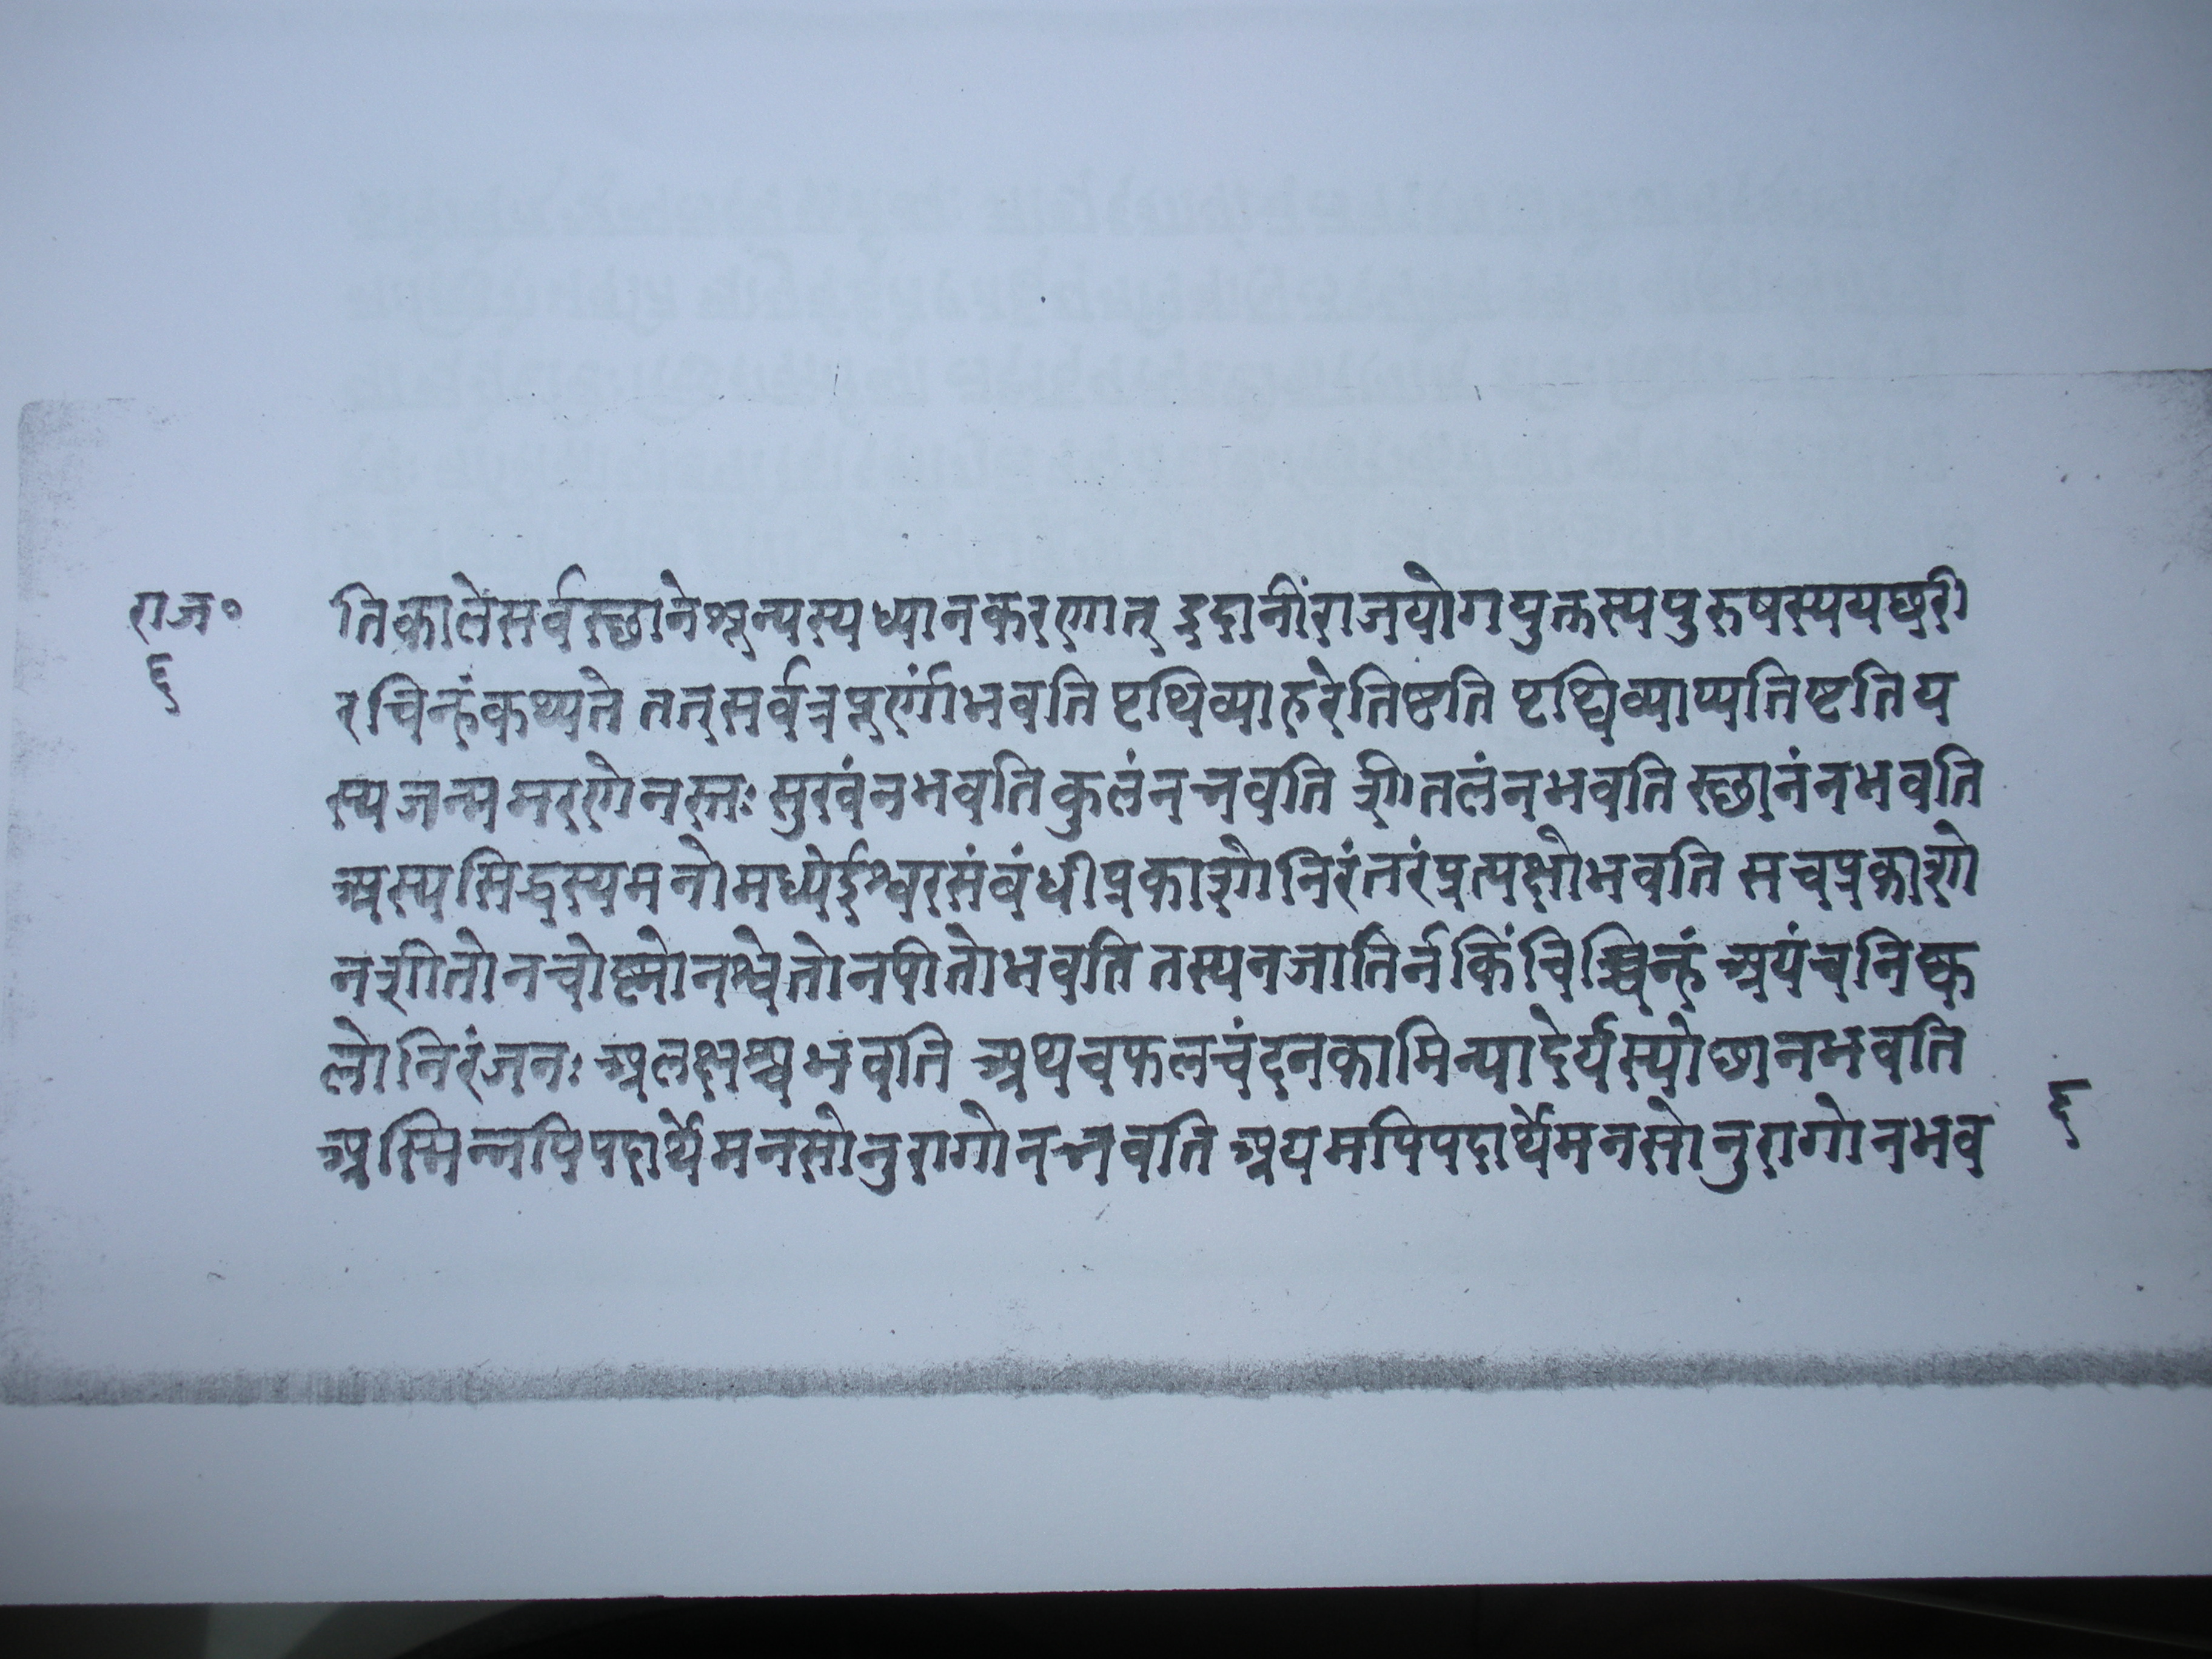 राज॰
६
तिकालेसर्वस्छानेशून्यस्यध्यानकरणात् इदानींराजयोगयुक्तस्यपुरुषस्ययछरी
रचिन्हंकथ्यते तत्सर्वत्रपूर्णंभवति पृथिव्याहरेतिष्टति पृथ्विव्याप्यतिष्टतिय
स्यजन्ममरणेनस्तः सुखंनभवति कुलंनभवति शीतलंनभवति स्छानंनभवति
अस्यसिद्धस्यमनोमध्येईश्वरसंबंधीप्रकाशोनिरंतरंप्रत्यक्षोभवति सचप्रकाशो
नशीतोनचोष्मोनश्वेतोनपीतोभवति तस्यनजातिर्नकिंचिच्चिन्हं अयंचनिष्क
लोनिरंजनः अलक्षश्चभवति अथचफलचंदनकामिन्यादेर्यस्योछानभवति
अस्मिन्नपिपदार्थेमनसोनुरागोनभवति अयमपिपदार्थेमनसोनुरागोनभव
६